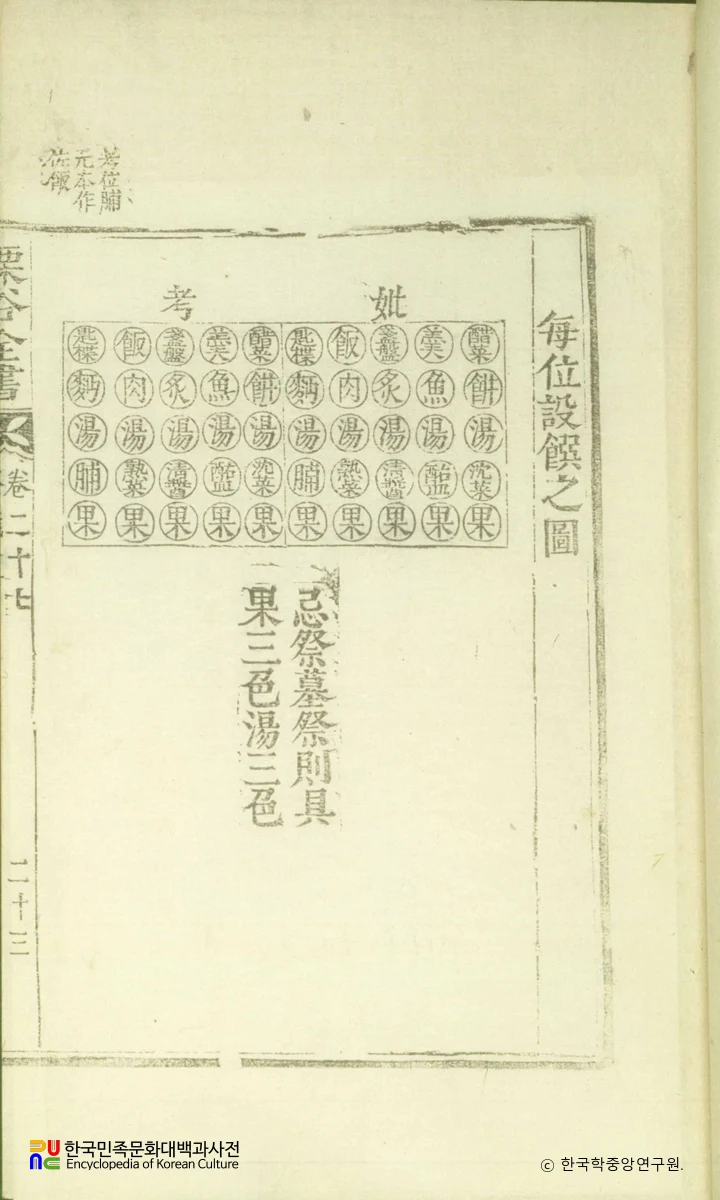 每位設饌之圖
妣
考
匙楪 飯 盞盤 羹 醋菜 匙楪 飯 盞盤 羹 醋菜
麪 肉 炙 魚 餠 麪 肉 炙 魚 餠
湯 湯 湯 湯 湯 湯 湯 湯 湯 湯
脯 熟菜 淸醬 醢 沈菜 脯 熟菜 淸醬 醢 沈菜
果 果 果 果 果 果 果 果 果 果
忌祭墓祭則具
果三色湯三色
考位脯
元本作
佐飯
栗谷全書
卷二十七
二十三
한국민족문화대백과사전
Encyclopedia of Korean Culture
ⓒ 한국학중앙연구원.